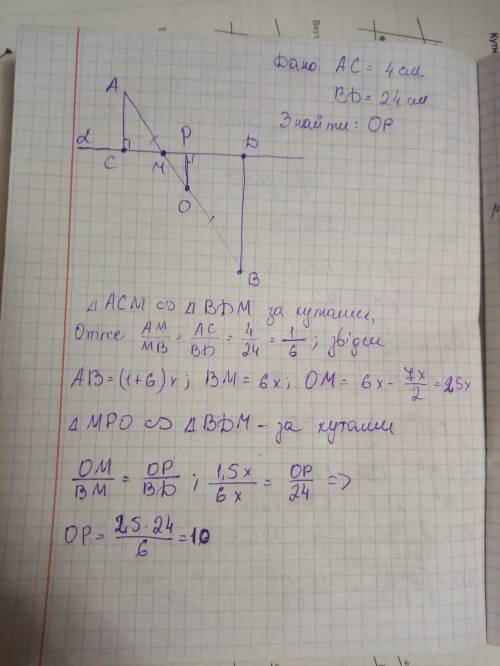 Дано: AC = 4 см
BD = 24 см
Знайти: OP
A
α
C
M
P
D
O
B
△ ACM ∾ △ BDM за кутами,
Отже AM/MB = AC/BD = 4/24 = 1/6 ; звідси
AB = (1+6)x ; BM = 6x ; OM = 6x - 7x/2 = 2,5x
△ MPO ∾ △ BDM - за кутами
OM/BM = OP/BD ; 1,5x/6x = OP/24 =>
OP = 2,5·24/6 = 10